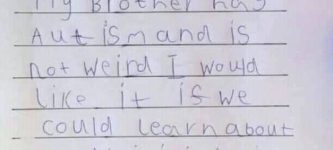 My Brother has
Autism and is
not weird I would
like it if we
could learn about